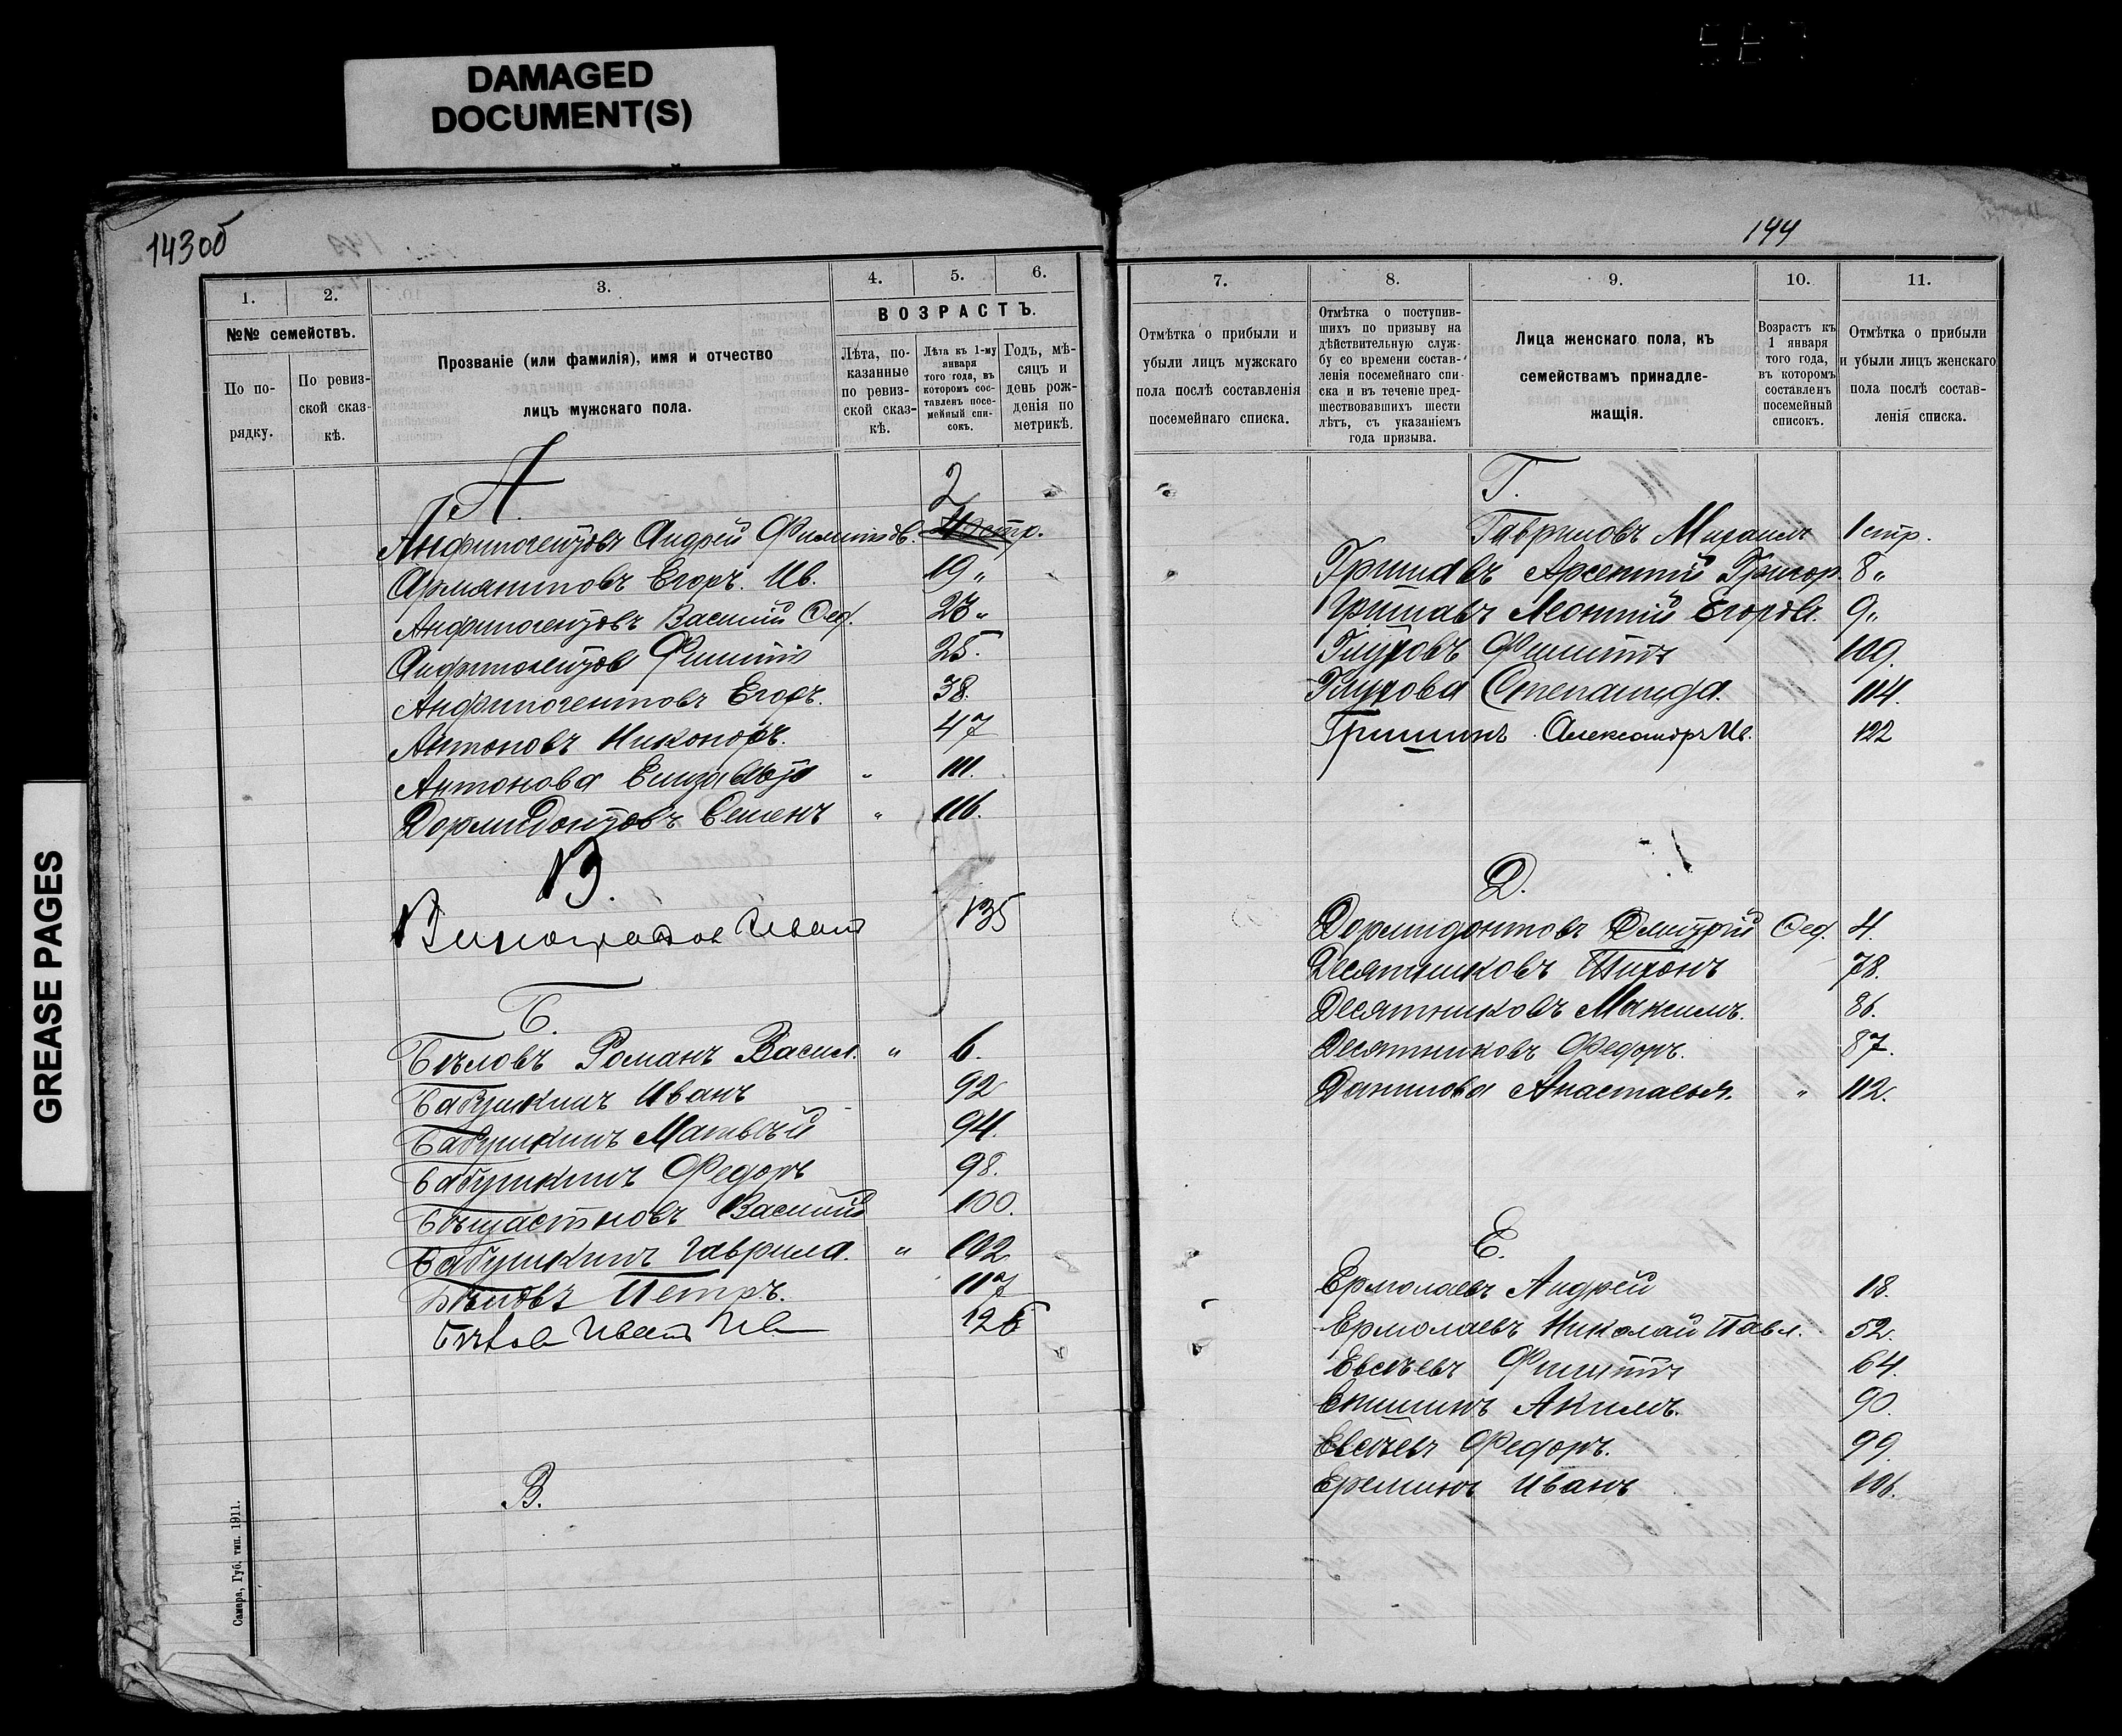 DAMAGED
DOCUMENT(S)
GREASE PAGES
143 об
1.
2.
3.
4.
5.
6.
№№ семействъ.
По порядку.
По ревизской сказкѣ.
Прозваніе (или фамилія), имя и отчество
лицъ мужскаго пола.
ВОЗРАСТЪ.
Лѣта, показанные по ревизской сказкѣ.
Лѣта къ 1-му января того года, въ которомъ составленъ посемейный списокъ.
Годъ, мѣсяцъ и день рожденія по метрикѣ.
А.
2
Анфиногентовъ Андрей Филиппов. стр.
Армянтовъ Егоръ Ив. 19 „
Анфиногентовъ Василій Фед. 23 „
Анфиногентов Филиппъ 25.
Анфиногентовъ Егоръ. 38.
Антоновъ Никоноръ. 47
Антонова Елизавета „ 111.
Дормидонтовъ Семенъ „ 116.
В.
Виноградов Иван 135
Б.
Бѣловъ Романъ Васил. „ 6.
Бабушкинъ Иванъ 92
Бабушкинъ Матвѣй 94.
Бабушкинъ Федоръ 98.
Бѣщастновъ Василий 100.
Бабушкинъ Гаврила. „ 102
Бѣловъ Петръ. 117
Иван Ив 126
В.
Самара, Губ. тип. 1911.
144
7.
8.
9.
10.
11.
Отмѣтка о прибыли и
убыли лицъ мужскаго
пола послѣ составленія
посемейнаго списка.
Отмѣтка о поступив-
шихъ по призыву на
дѣйствительную служ-
бу со времени состав-
ленія посемейнаго спи-
ска и въ теченіе пред-
шествовавшихъ шести
лѣтъ, съ указаніемъ
года призыва.
Лица женскаго пола, къ
семействамъ принадле-
жащія.
Возрастъ къ
1 января
того года,
въ которомъ
составленъ
посемейный
списокъ.
Отмѣтка о прибыли
и убыли лицъ женскаго
пола послѣ состав-
ленія списка.
Г.
Гавриловъ Михаилъ 1 стр.
Гришавъ Арсентій Григор. 8 „
Гришавъ Леонтій Егоров. 9 „
Глуховъ Филиппъ 109.
Глухова Степанида. 114.
Гришинъ Александръ Ив. 122
Д.
Дормидонтовъ Дмитрій Фед. 4.
Десятниковъ Тихонъ 78.
Десятниковъ Максимъ. 86.
Десятниковъ Федоръ. 87.
Данилова Анастасья. „ 112.
Е.
Ермолаевъ Андрей 18.
Ермолаевъ Николай Павл. 52.
Евсѣевъ Филиппъ 64.
Епишинъ Акимъ. 90.
Евсѣевъ Федоръ. 99.
Ереминъ Иванъ 106.